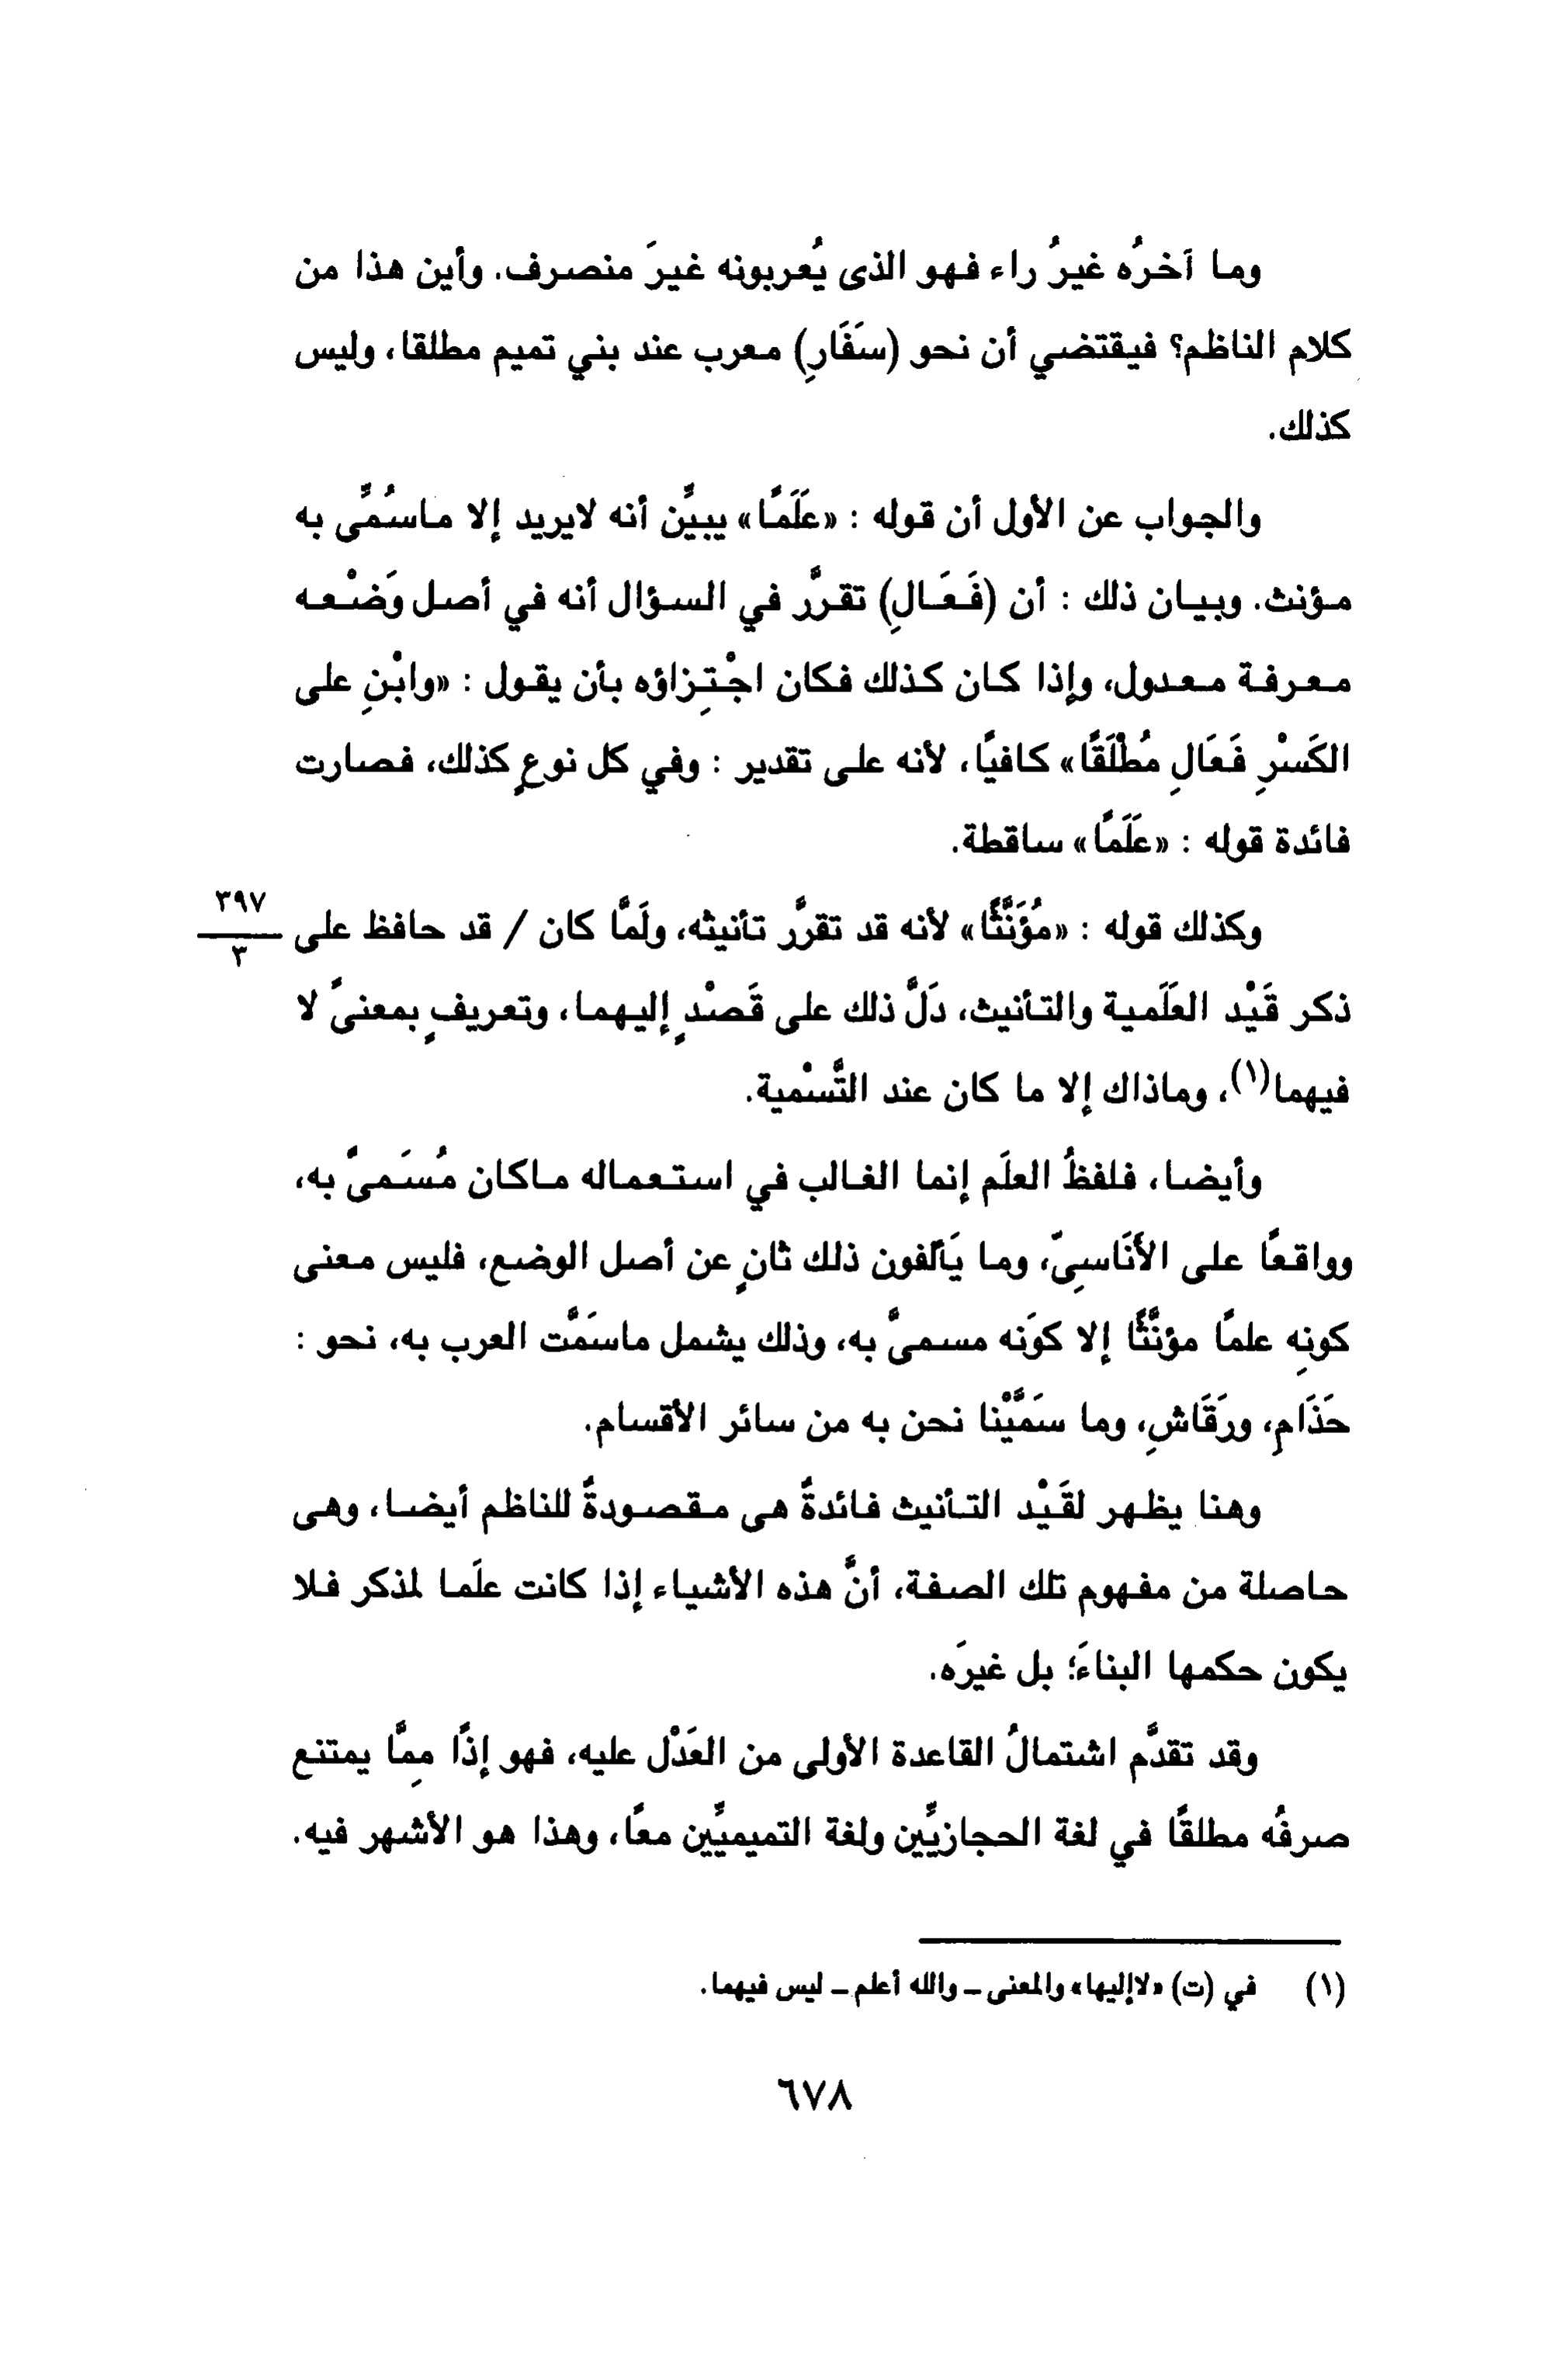 وما آخرُه غيرُ راء فهو الذى يُعربونه غيرَ منصرف. وأين هذا من
كلام الناظم؟ فيقتضي أن نحو (سَفَارِ) معرب عند بني تميم مطلقا، وليس
كذلك.
والجواب عن الأول أن قوله : «عَلَمًا» يبيِّن أنه لايريد إلا ماسُمِّى به
مؤنث. وبيان ذلك : أن (فَعَالِ) تقرَّر في السؤال أنه في أصل وَضْعه
معرفة معدول، وإذا كان كذلك فكان اجْتِزاؤه بأن يقول : «وابْنِ على
الكَسْرِ فَعَالِ مُطْلَقًا» كافيًا، لأنه على تقدير : وفي كل نوعٍ كذلك، فصارت
فائدة قوله : «عَلَمًا» ساقطة.
وكذلك قوله : «مُؤَنَّثًا» لأنه قد تقرَّر تأنيثه، ولَمَّا كان / قد حافظ على
٣٩٧
٣
ذكر قَيْد العَلَمية والتأنيث، دَلَّ ذلك على قَصْدٍ إليهما، وتعريفٍ بمعنىً لا
فيهما(١)، وماذاك إلا ما كان عند التَّسْمية.
وأيضا، فلفظُ العلَم إنما الغالب في استعماله ماكان مُسَمىً به،
وواقعًا على الأَنَاسِىّ، وما يَألفون ذلك ثانٍ عن أصل الوضع، فليس معنى
كونِه علمًا مؤنَّثًا إلا كوَنه مسمىً به، وذلك يشمل ماسَمَّت العرب به، نحو :
حَذَامِ، ورَقَاشِ، وما سَمَّيْنا نحن به من سائر الأقسام.
وهنا يظهر لقَيْد التأنيث فائدةٌ هى مقصودةٌ للناظم أيضا، وهى
حاصلة من مفهوم تلك الصفة، أنَّ هذه الأشياء إذا كانت علَما لمذكر فلا
يكون حكمها البناءَ؛ بل غيرَه.
وقد تقدَّم اشتمالُ القاعدة الأولى من العَدْل عليه، فهو إذًا مِمَّا يمتنع
صرفُه مطلقًا في لغة الحجازيِّين ولغة التميميِّين معًا، وهذا هو الأشهر فيه.
(١) في (ت) «لاإليها» والمعنى - والله أعلم - ليس فيهما.
٦٧٨